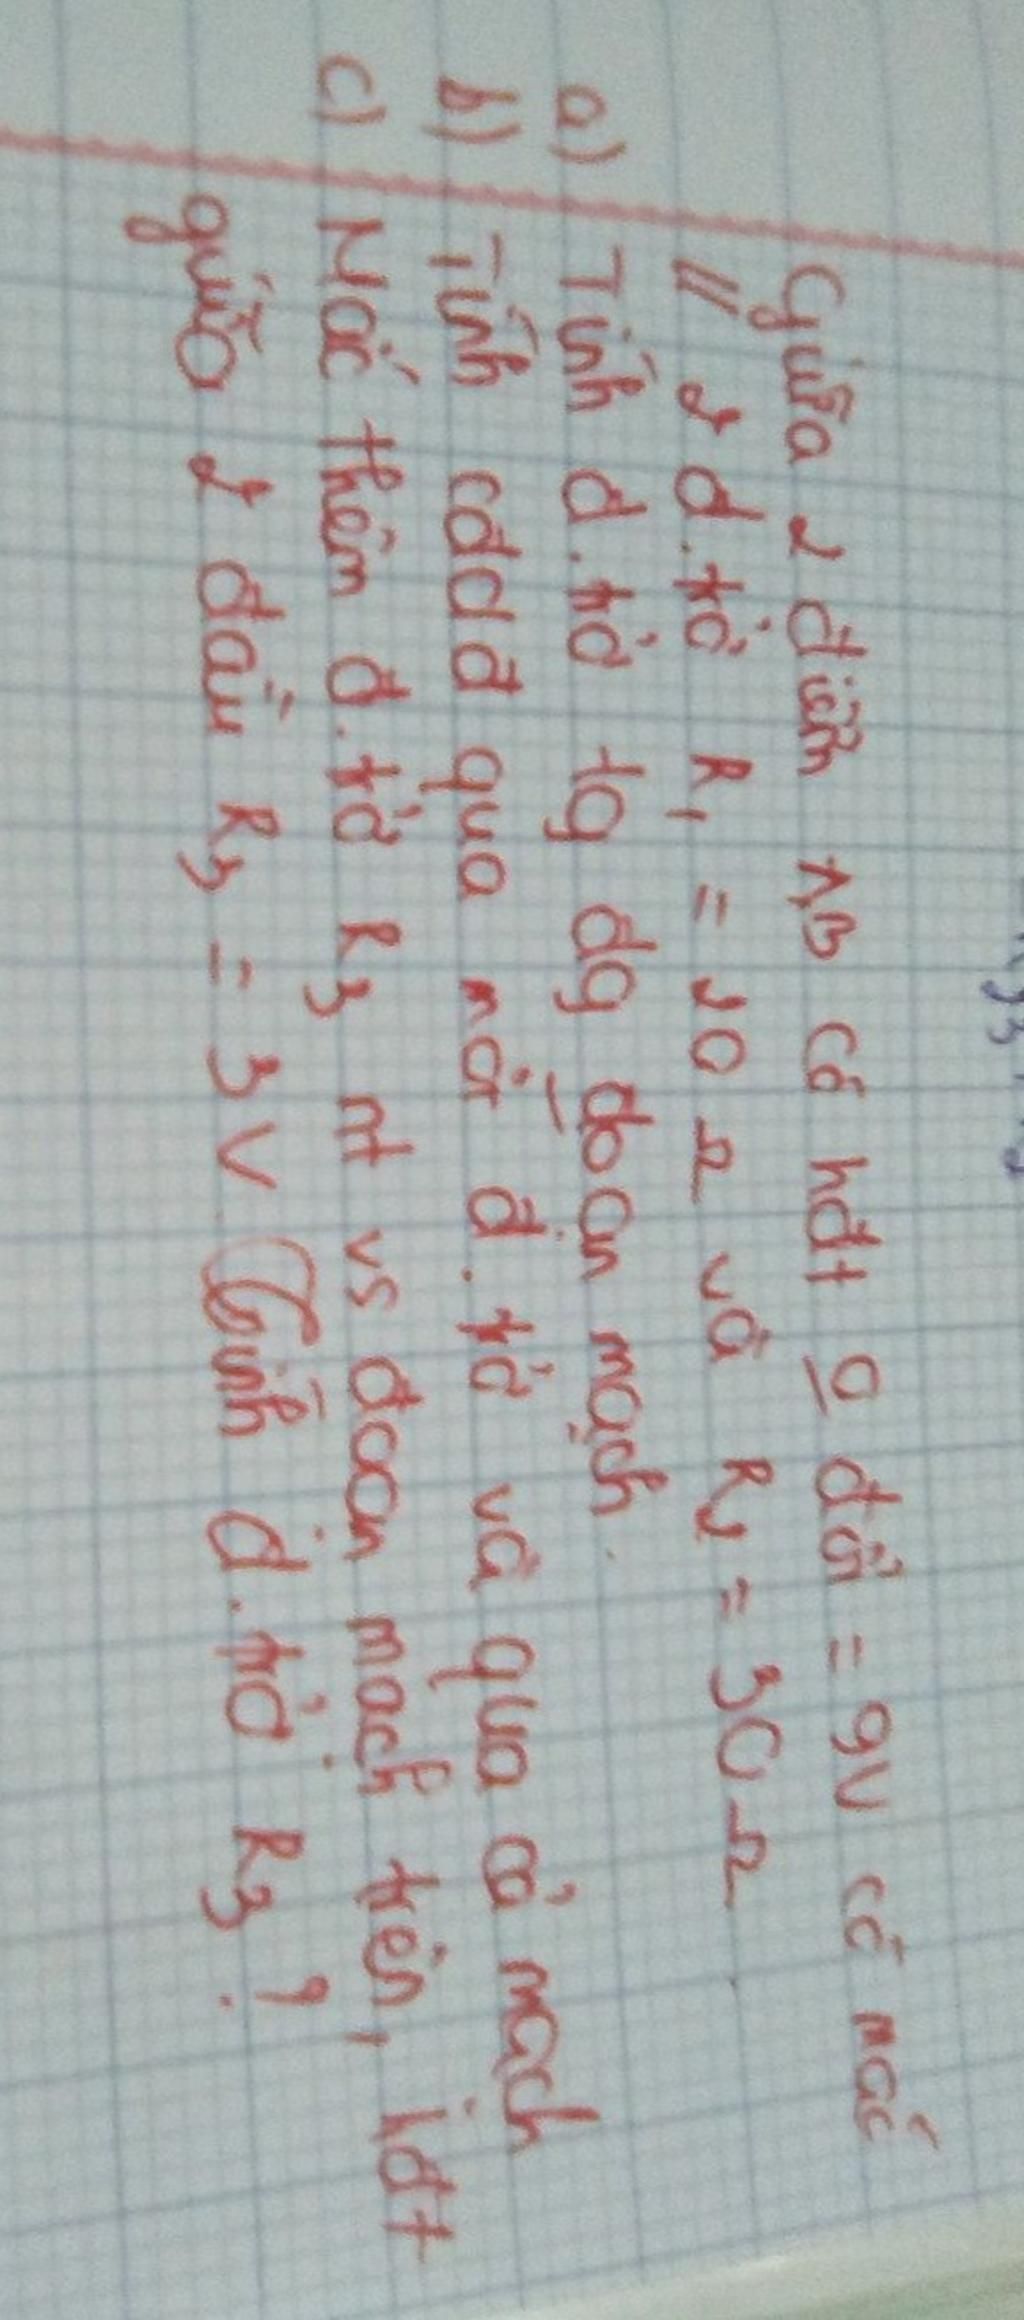 Giữa 2 điểm AB có hđt o đổi = 9V có mắc
// 2 đ.trở R₁ = 20 Ω và R₂ = 30 Ω
a) Tính đ.trở tg đg đoạn mạch.
b) Tính cđdđ qua mỗi đ.trở và qua cả mạch
c) Mắc thêm đ.trở R₃ nt vs đoạn mạch trên, hđt
giữa 2 đầu R₃ = 3V. Tính đ.trở R₃?